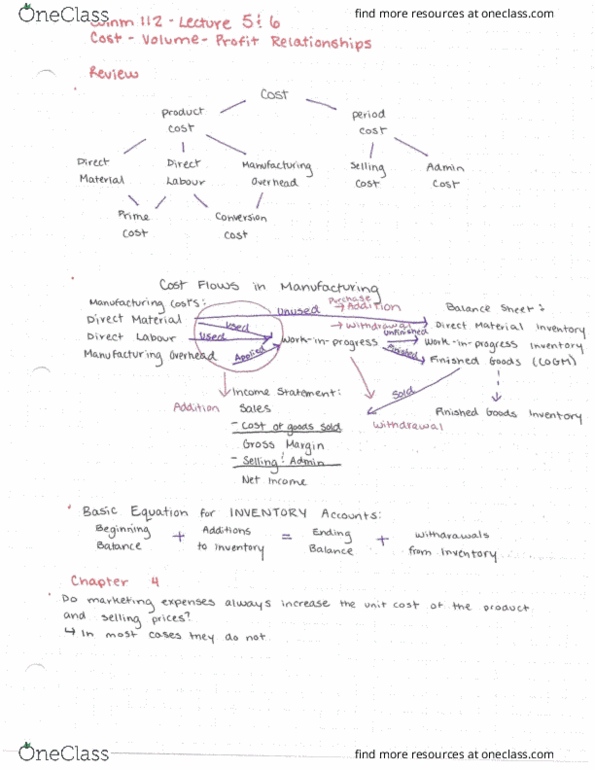 OneClass find more resources at oneclass.com
112 - Lecture 5 & 6
Cost - Volume - Profit Relationships
Review
Cost
product cost
period cost
Direct Material
Direct Labour
Manufacturing Overhead
Selling Cost
Admin Cost
Prime Cost
Conversion Cost
Cost Flows in Manufacturing
Manufacturing Costs:
Purchase
→ Addition
Balance Sheet:
Unused
Direct Material
Used
→ Withdrawal
Direct Material Inventory
Direct Labour
Used
Work-in-progress
Unfinished
Work-in-progress Inventory
Manufacturing Overhead
Applied
Finished
Finished Goods (COGM)
Sold
Income Statement:
Addition
Sales
Finished Goods Inventory
- Cost of goods sold
Withdrawal
Gross Margin
- Selling & Admin
Net Income
Basic Equation for INVENTORY Accounts:
Beginning Balance + Additions to Inventory = Ending Balance + Withdrawals from Inventory
Chapter 4
Do marketing expenses always increase the unit cost of the product
and selling prices?
↳ In most cases they do not
OneClass find more resources at oneclass.com